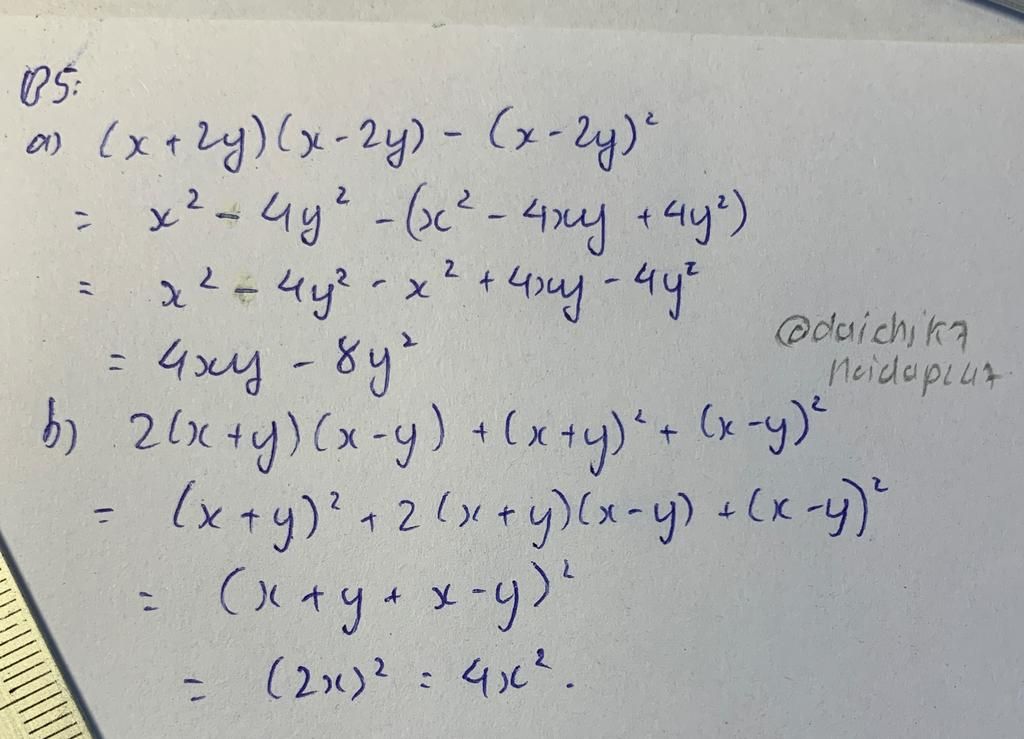 B5:
a) (x + 2y)(x - 2y) - (x - 2y)²
= x² - 4y² - (x² - 4xy + 4y²)
= x² - 4y² - x² + 4xy - 4y²
= 4xy - 8y²
b) 2(x + y)(x - y) + (x + y)² + (x - y)²
= (x + y)² + 2(x + y)(x - y) + (x - y)²
= (x + y + x - y)²
= (2x)² = 4x².